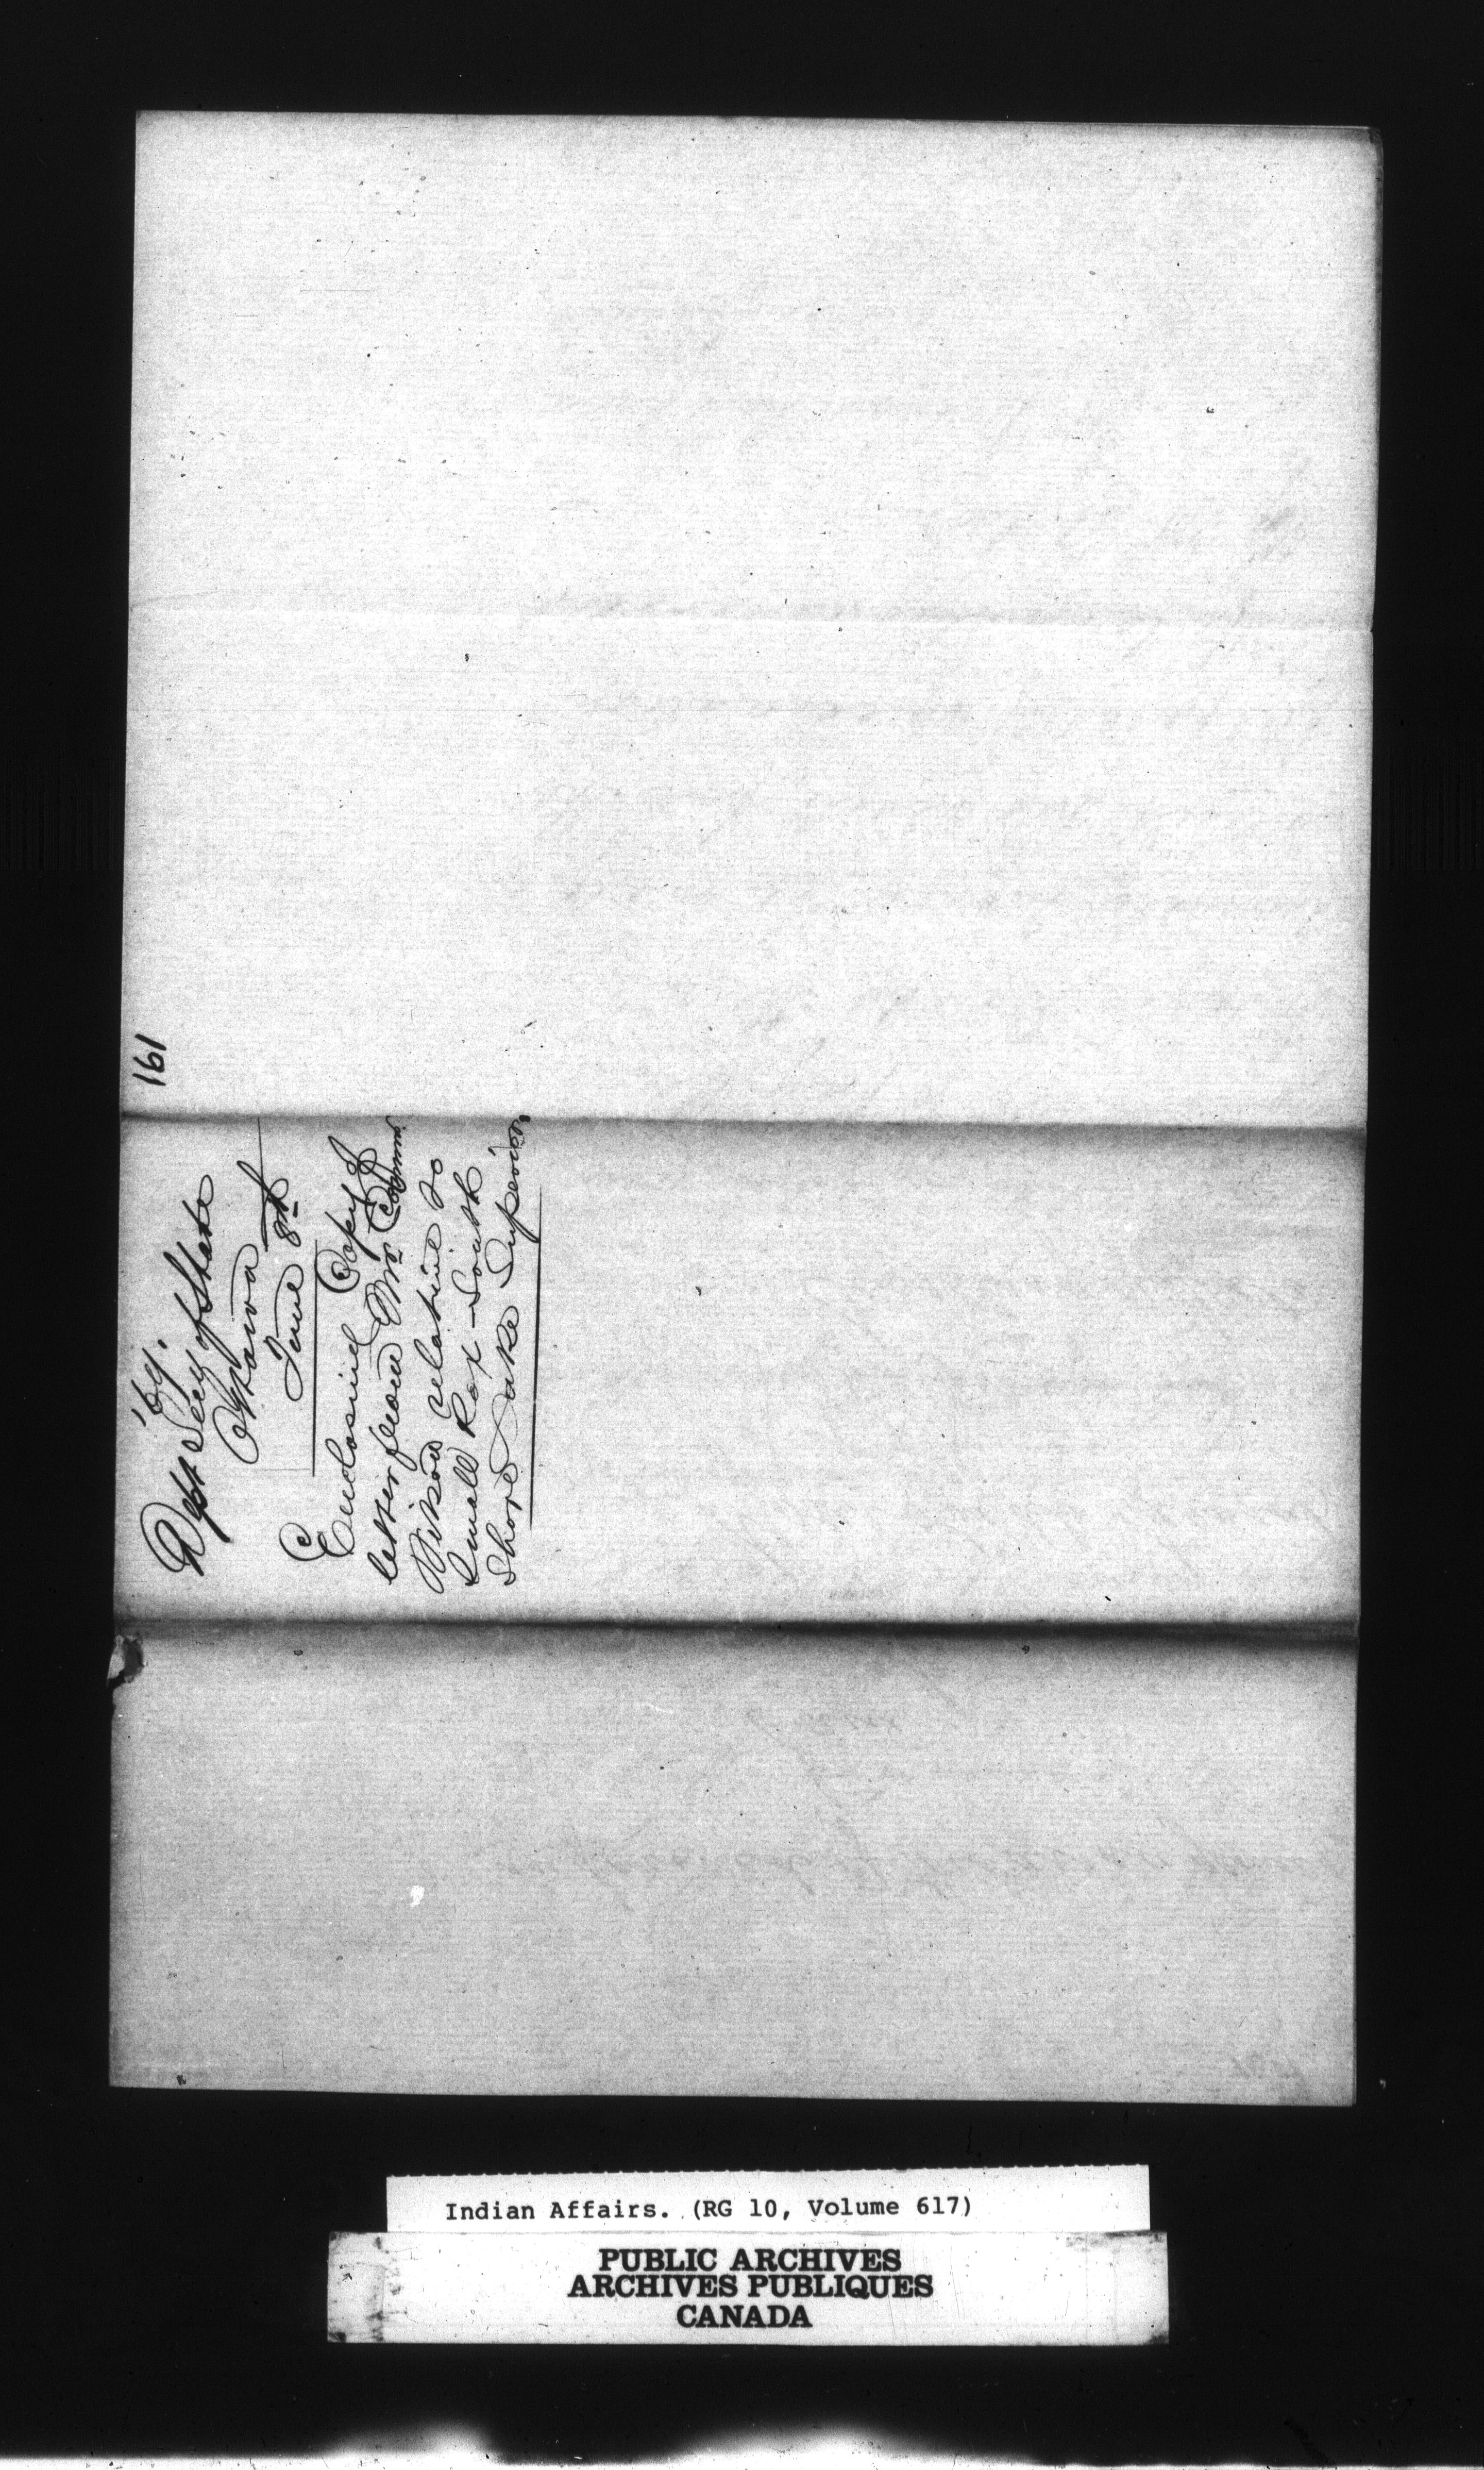 161
'69.
Dept Secy of State
Ottawa
June 8th
Enclosing Copy of
letter from Mr. Commr
relative to
Small Pox South
Shore Lake Superior
Indian Affairs. (RG 10, Volume 617)
PUBLIC ARCHIVES
ARCHIVES PUBLIQUES
CANADA